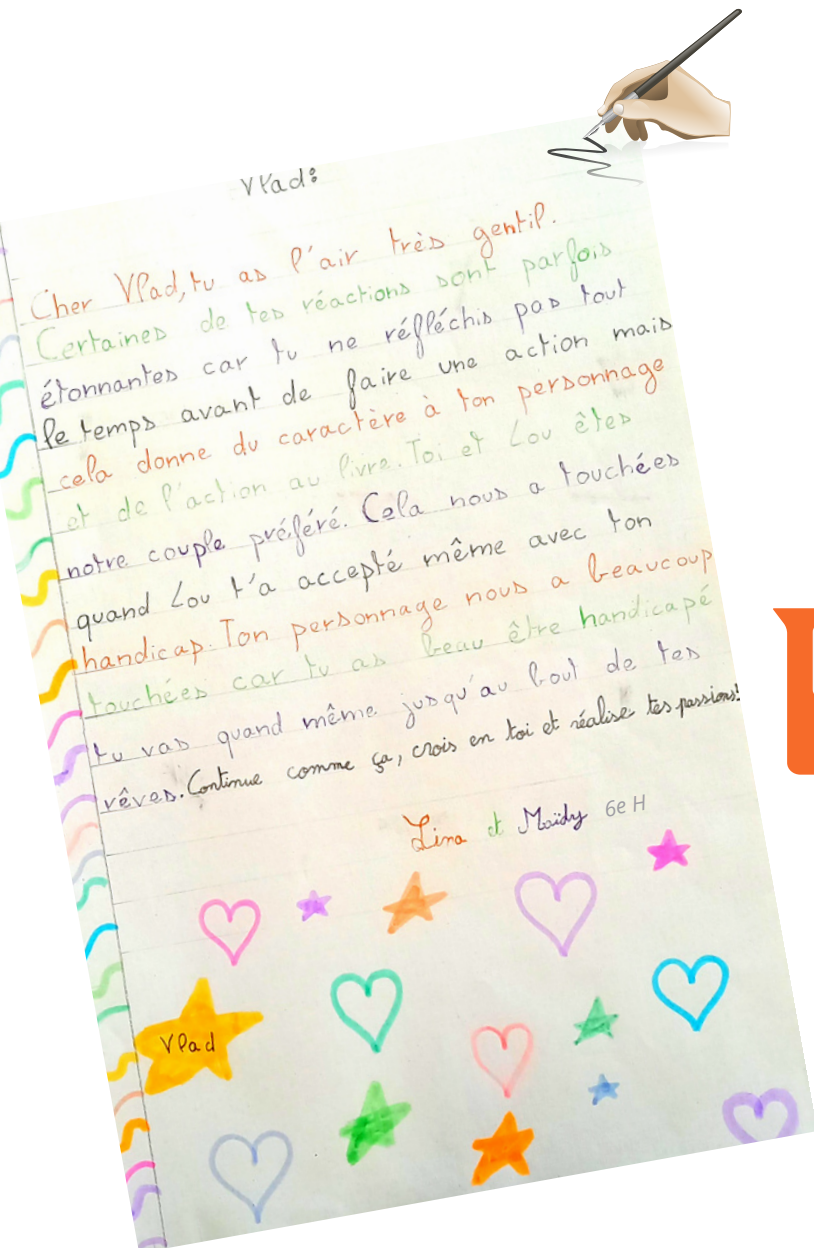 Vlad:
Cher Vlad, tu as l'air très gentil.
Certaines de tes réactions sont parfois
étonnantes car tu ne réfléchis pas tout
le temps avant de faire une action mais
cela donne du caractère à ton personnage
et de l'action au livre. Toi et Lou êtes
notre couple préféré. Cela nous a touchées
quand Lou t'a accepté même avec ton
handicap. Ton personnage nous a beaucoup
touchées car tu as beau être handicapé
tu vas quand même jusqu'au bout de tes
rêves. Continue comme ça, crois en toi et réalise tes passions!
Lina et Maïdy 6e H
Vlad